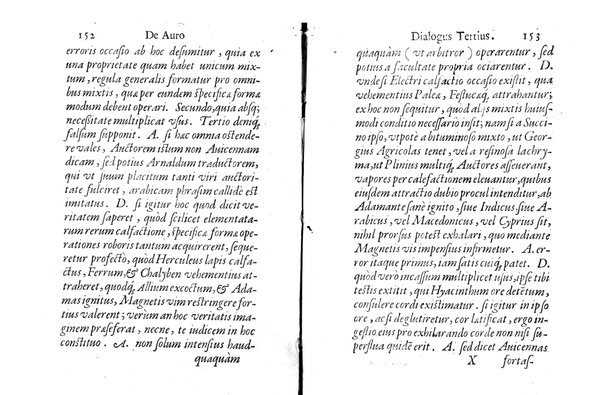 152 De Auro
erroris occasio ab hoc desumitur, quia ex
una proprietate quam habet unicum mix-
tum, regula generalis formatur pro omni-
bus mixtis, quæ per eundem specificæ formæ
modum debent operari. Secundo, quia absq;
necessitate multiplicat usus. Tertio deniq,
falsum supponit. A. si hæc omnia ostende-
re vales, Auctorem istum non Auicennam
dicam, sed potius Arnaldum traductorem,
qui vt suum placitum tanti viri auctori-
tate fulciret, arabicam phrasim callidè est
imitatus. D. si igitur hoc quod dicit ve-
ritatem saperet, quòd scilicet elementata-
rum rerum calfactione, specificæ formæ ope-
rationes roboris tantum acquirerent, seque-
retur profectò, quòd Herculeus lapis calfa-
ctus, Ferrum, & Chalyben vehementius at-
traheret, quodq, Allium excoctum, & Ada-
mas ignitus, Magnetis vim restringere for-
tius valerent; verum an hoc veritatis ima-
ginem præseferat, necne, te iudicem in hoc
constituo. A. non solum intensius haud-
quaquàm
Dialogus Tertius. 153
quaquàm (vt arbitror) operarentur, sed
potius a facultate propria ociarentur. D.
vnde si Electri calfactio occasio existit, quæ
vehementius Paleæ, Festucæq, abtrahantur;
ex hoc non sequitur, quod alijs mixtis huius-
modi conditio necessario insit; nam si Succi-
no ipso, vtpotè a bituminoso mixto, ut Geor-
gius Agricolas tenet, vel a resinosa lachry-
ma, ut Plinius multiq, Auctores asseuerant,
vapores per calefactionem eleuantur, quibus
eiusdem attractio dubio procul intenditur, ab
Adamante sanè ignito, siue Indicus siue A-
rabicus, vel Macedonicus, vel Cyprius sit,
nihil prorsus potest exhalari, quo mediante
Magnetis vis impensius infirmetur. A. er-
ror itaque primus, iam satis cuiq, patet. D.
quod verò incassum multiplicet usus, ipse tibi
testis extitit, qui Hyacinthum ore detētum,
consulere cordi existimat. si igitur in ipso
ore, ac si deglutiretur, cor lætificat, ergo in-
gestio eius pro exhilarando corde non nisi su-
perflua quidē erit. A. sed dicet Auicennas
X fortas-